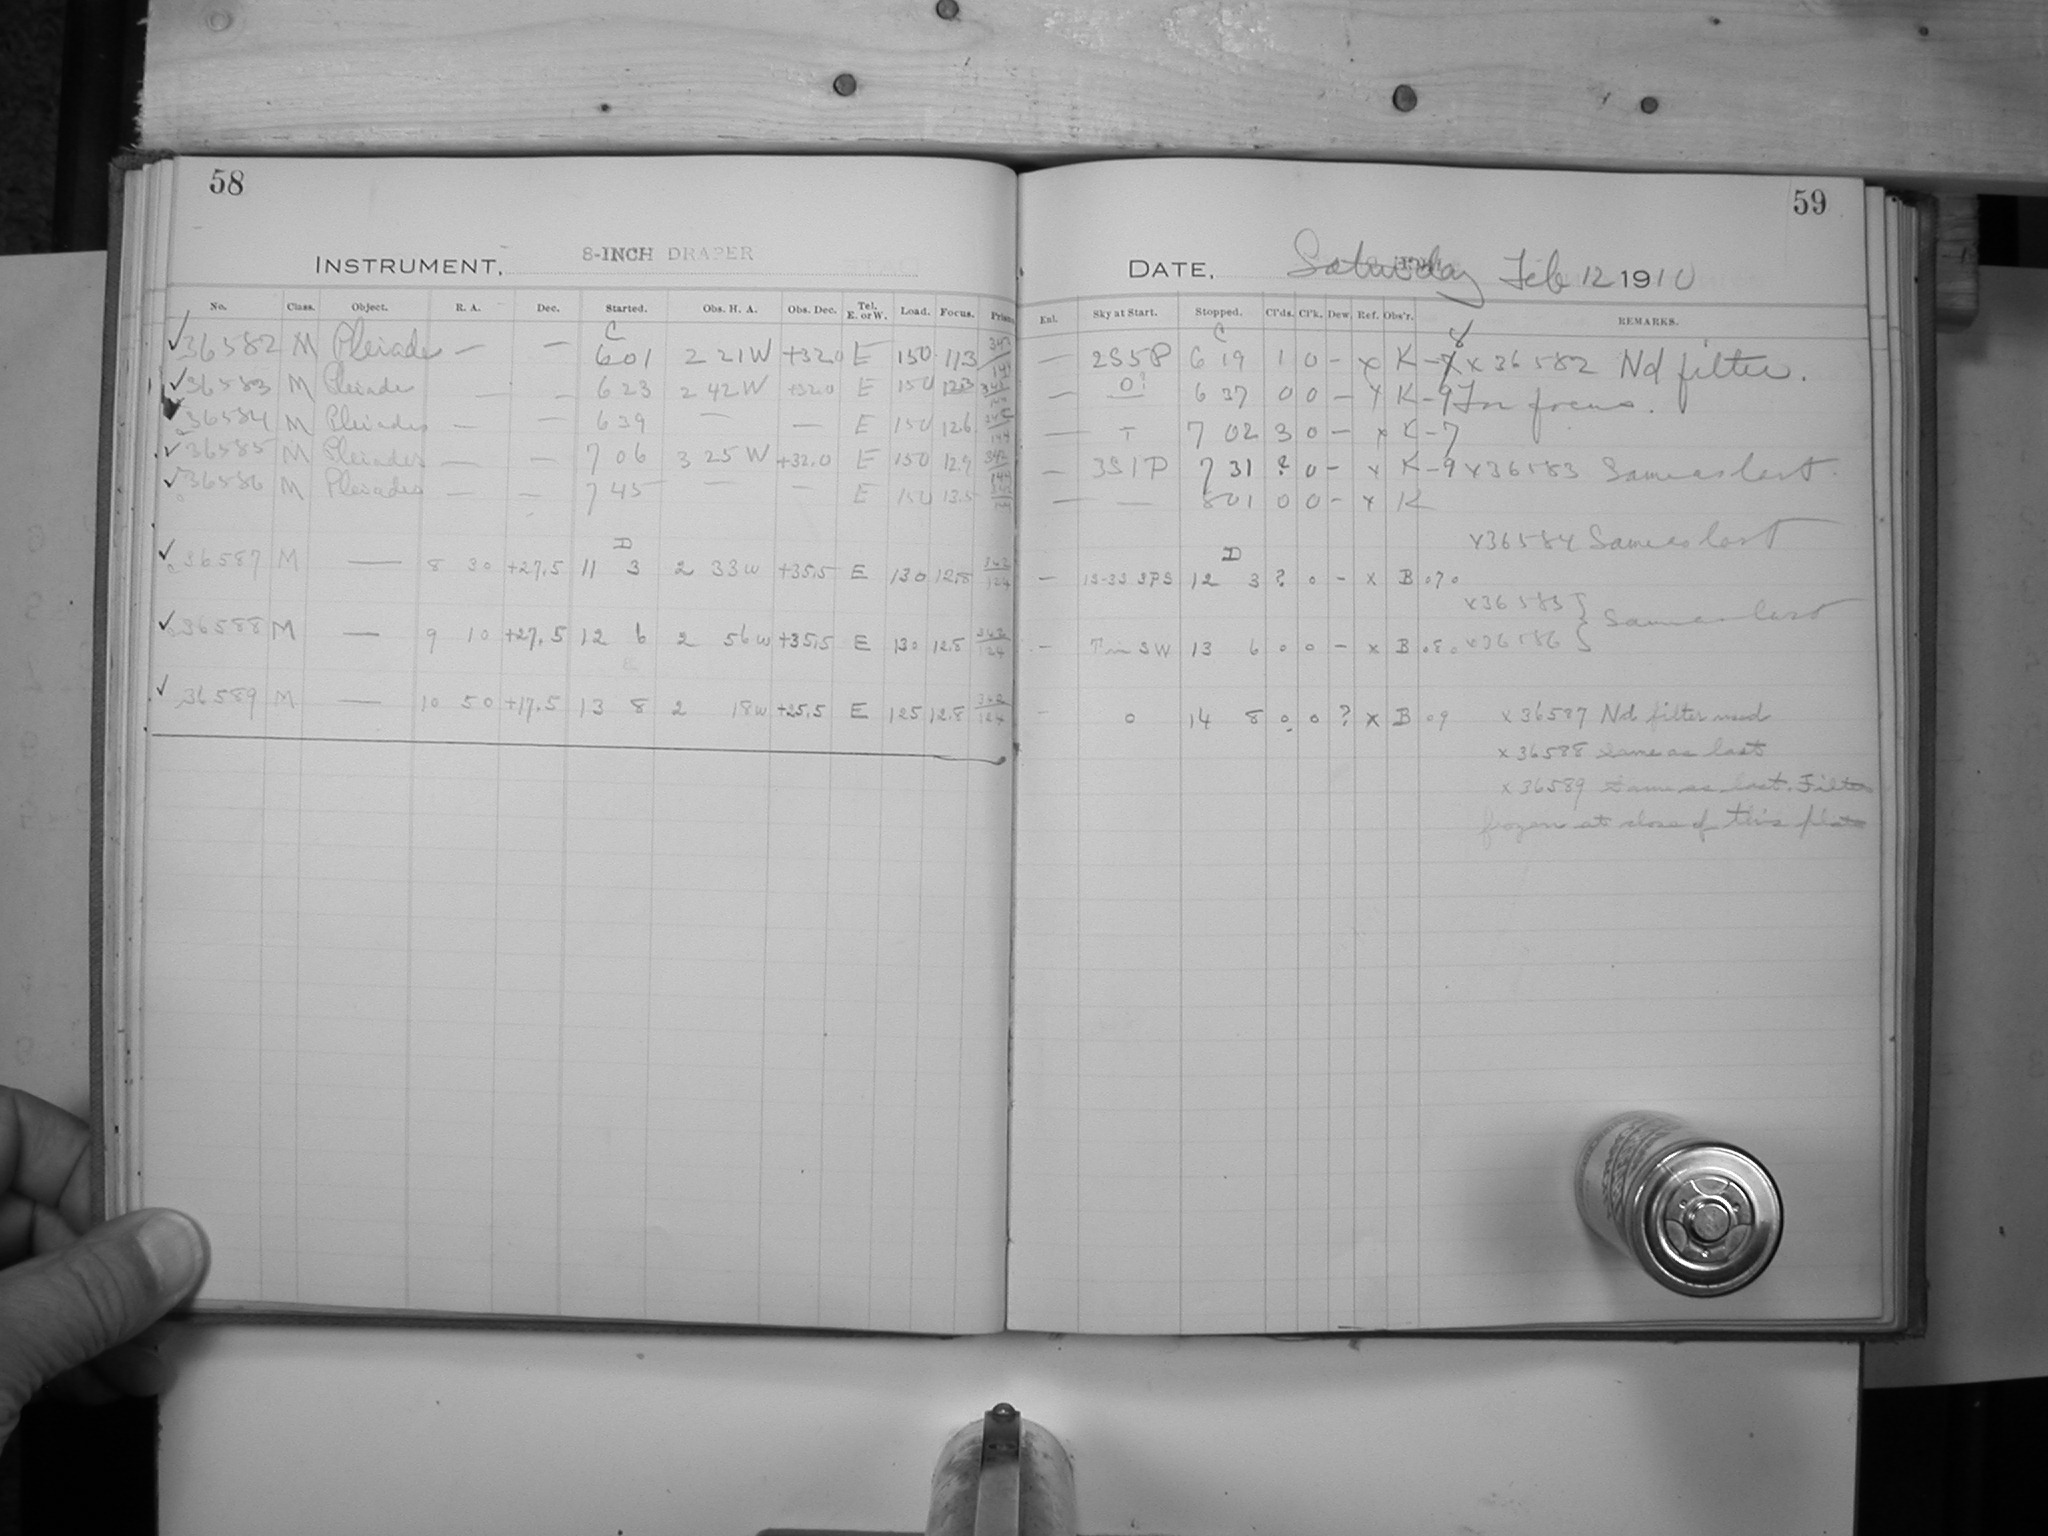 58
INSTRUMENT, 8-INCH DRAPER
No. Class. Object. R. A. Dec. Started. Obs. H. A. Obs. Dec. Tel. E. or W. Load. Focus. Prism
C
36582 M Pleiades — — 6 01 2 21 W +32.0 E 150 11.3
36583 M Pleiades — — 6 23 2 42 W +32.0 E 150 12.3
36584 M Pleiades — — 6 39 — — E 150 12.6
36585 M Pleiades — — 7 06 3 25 W +32.0 E 150 12.9
36586 M Pleiades — — 7 45 — — E 150 13.5
D
36587 M — 8 30 +27.5 11 3 2 33 W +35.5 E 130 12.8
36588 M — 9 10 +27.5 12 6 2 56 W +35.5 E 130 12.8
36589 M — 10 50 +17.5 13 8 2 18 W +25.5 E 125 12.8
59
DATE, Saturday Feb 12 1910
Enl. Sky at Start. Stopped. Cl'ds. Cl'k. Dew. Ref. Obs'r. REMARKS.
C
— 2S5P 6 19 1 0 – x K x 36582 Nd filter.
— 0? 6 37 0 0 – x K –9 For focus.
— T 7 02 3 0 – x K –7
— 3S1P 7 31 ? 0 – x K –9 x 36583 Same as last.
— — 8 01 0 0 – x K
x 36584 Same as last
D
— 12 3 ? 0 – x B
x 36585 } Same as last
— SW 13 6 0 0 – x B x 36586 }
– 0 14 8 0 0 ? x B 09 x 36587 Nd filter used
x 36588 Same as last
x 36589 Same as last. Filter
frozen at close of this plate